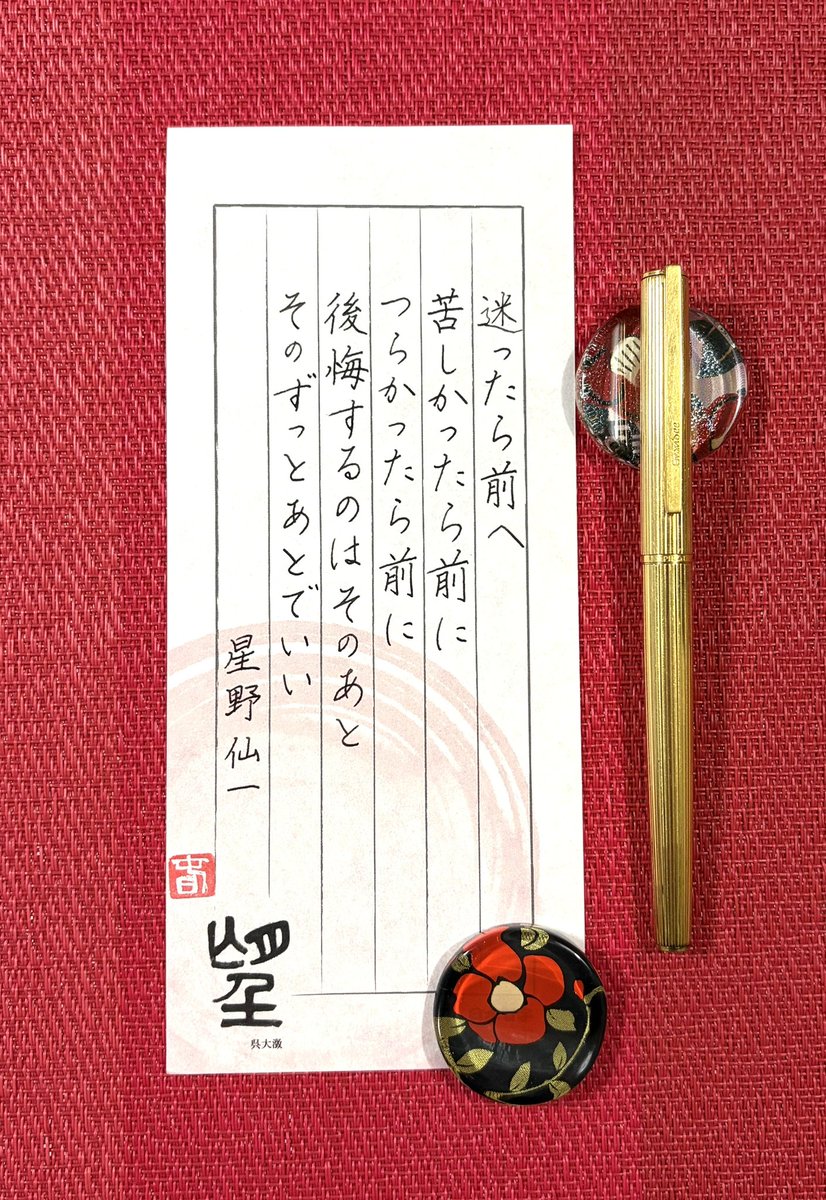 迷ったら前へ
苦しかったら前に
つらかったら前に
後悔するのはそのあと
そのずっとあとでいい
星野仙一
望
呉大澂